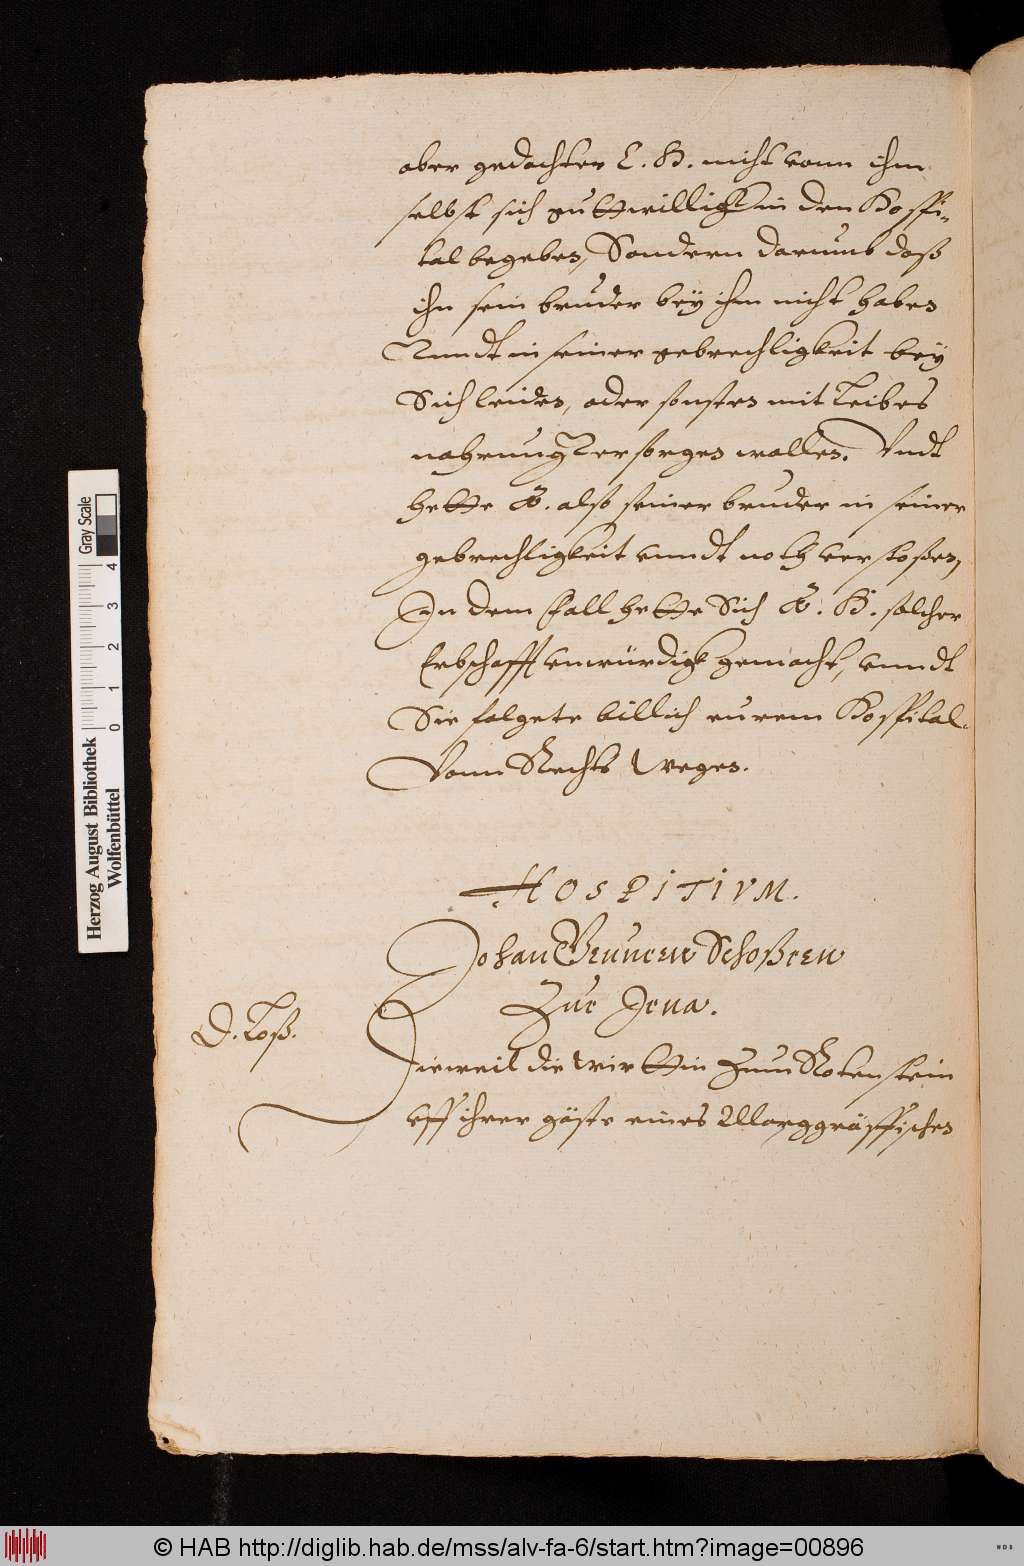 aber gedachter L. H. nicht vonn ihm
selbst sich guttwilligk in den Hospi-
tal begeben, Sondern darumb daß
ihn sein bruder bey ihm nicht haben
Vnndt in seiner gebrechligkeit bey
Sich leiden, oder sonsten mit Leibes
nahrung versorgen wollen. Vndt
hette A. also seinen bruder in seiner
gebrechligkeit vnndt noth verstoßen,
In dem fall hette Sich A. H. solcher
Erbschafft vnwürdigk gemacht, vnndt
Sie folgete billich eurem Hospital.
Vonn Rechts Wegen.
HOSPITIVM.
Johan Schoßern
Zue Jena.
D. Loß.
Dieweil die Wirttin Zum Rotenstein
vff ihrer gäste eines Marggräffischen
Herzog August Bibliothek
Wolfenbüttel
Gray Scale
0 1 2 3 4
© HAB http://diglib.hab.de/mss/alv-fa-6/start.htm?image=00896
WDB